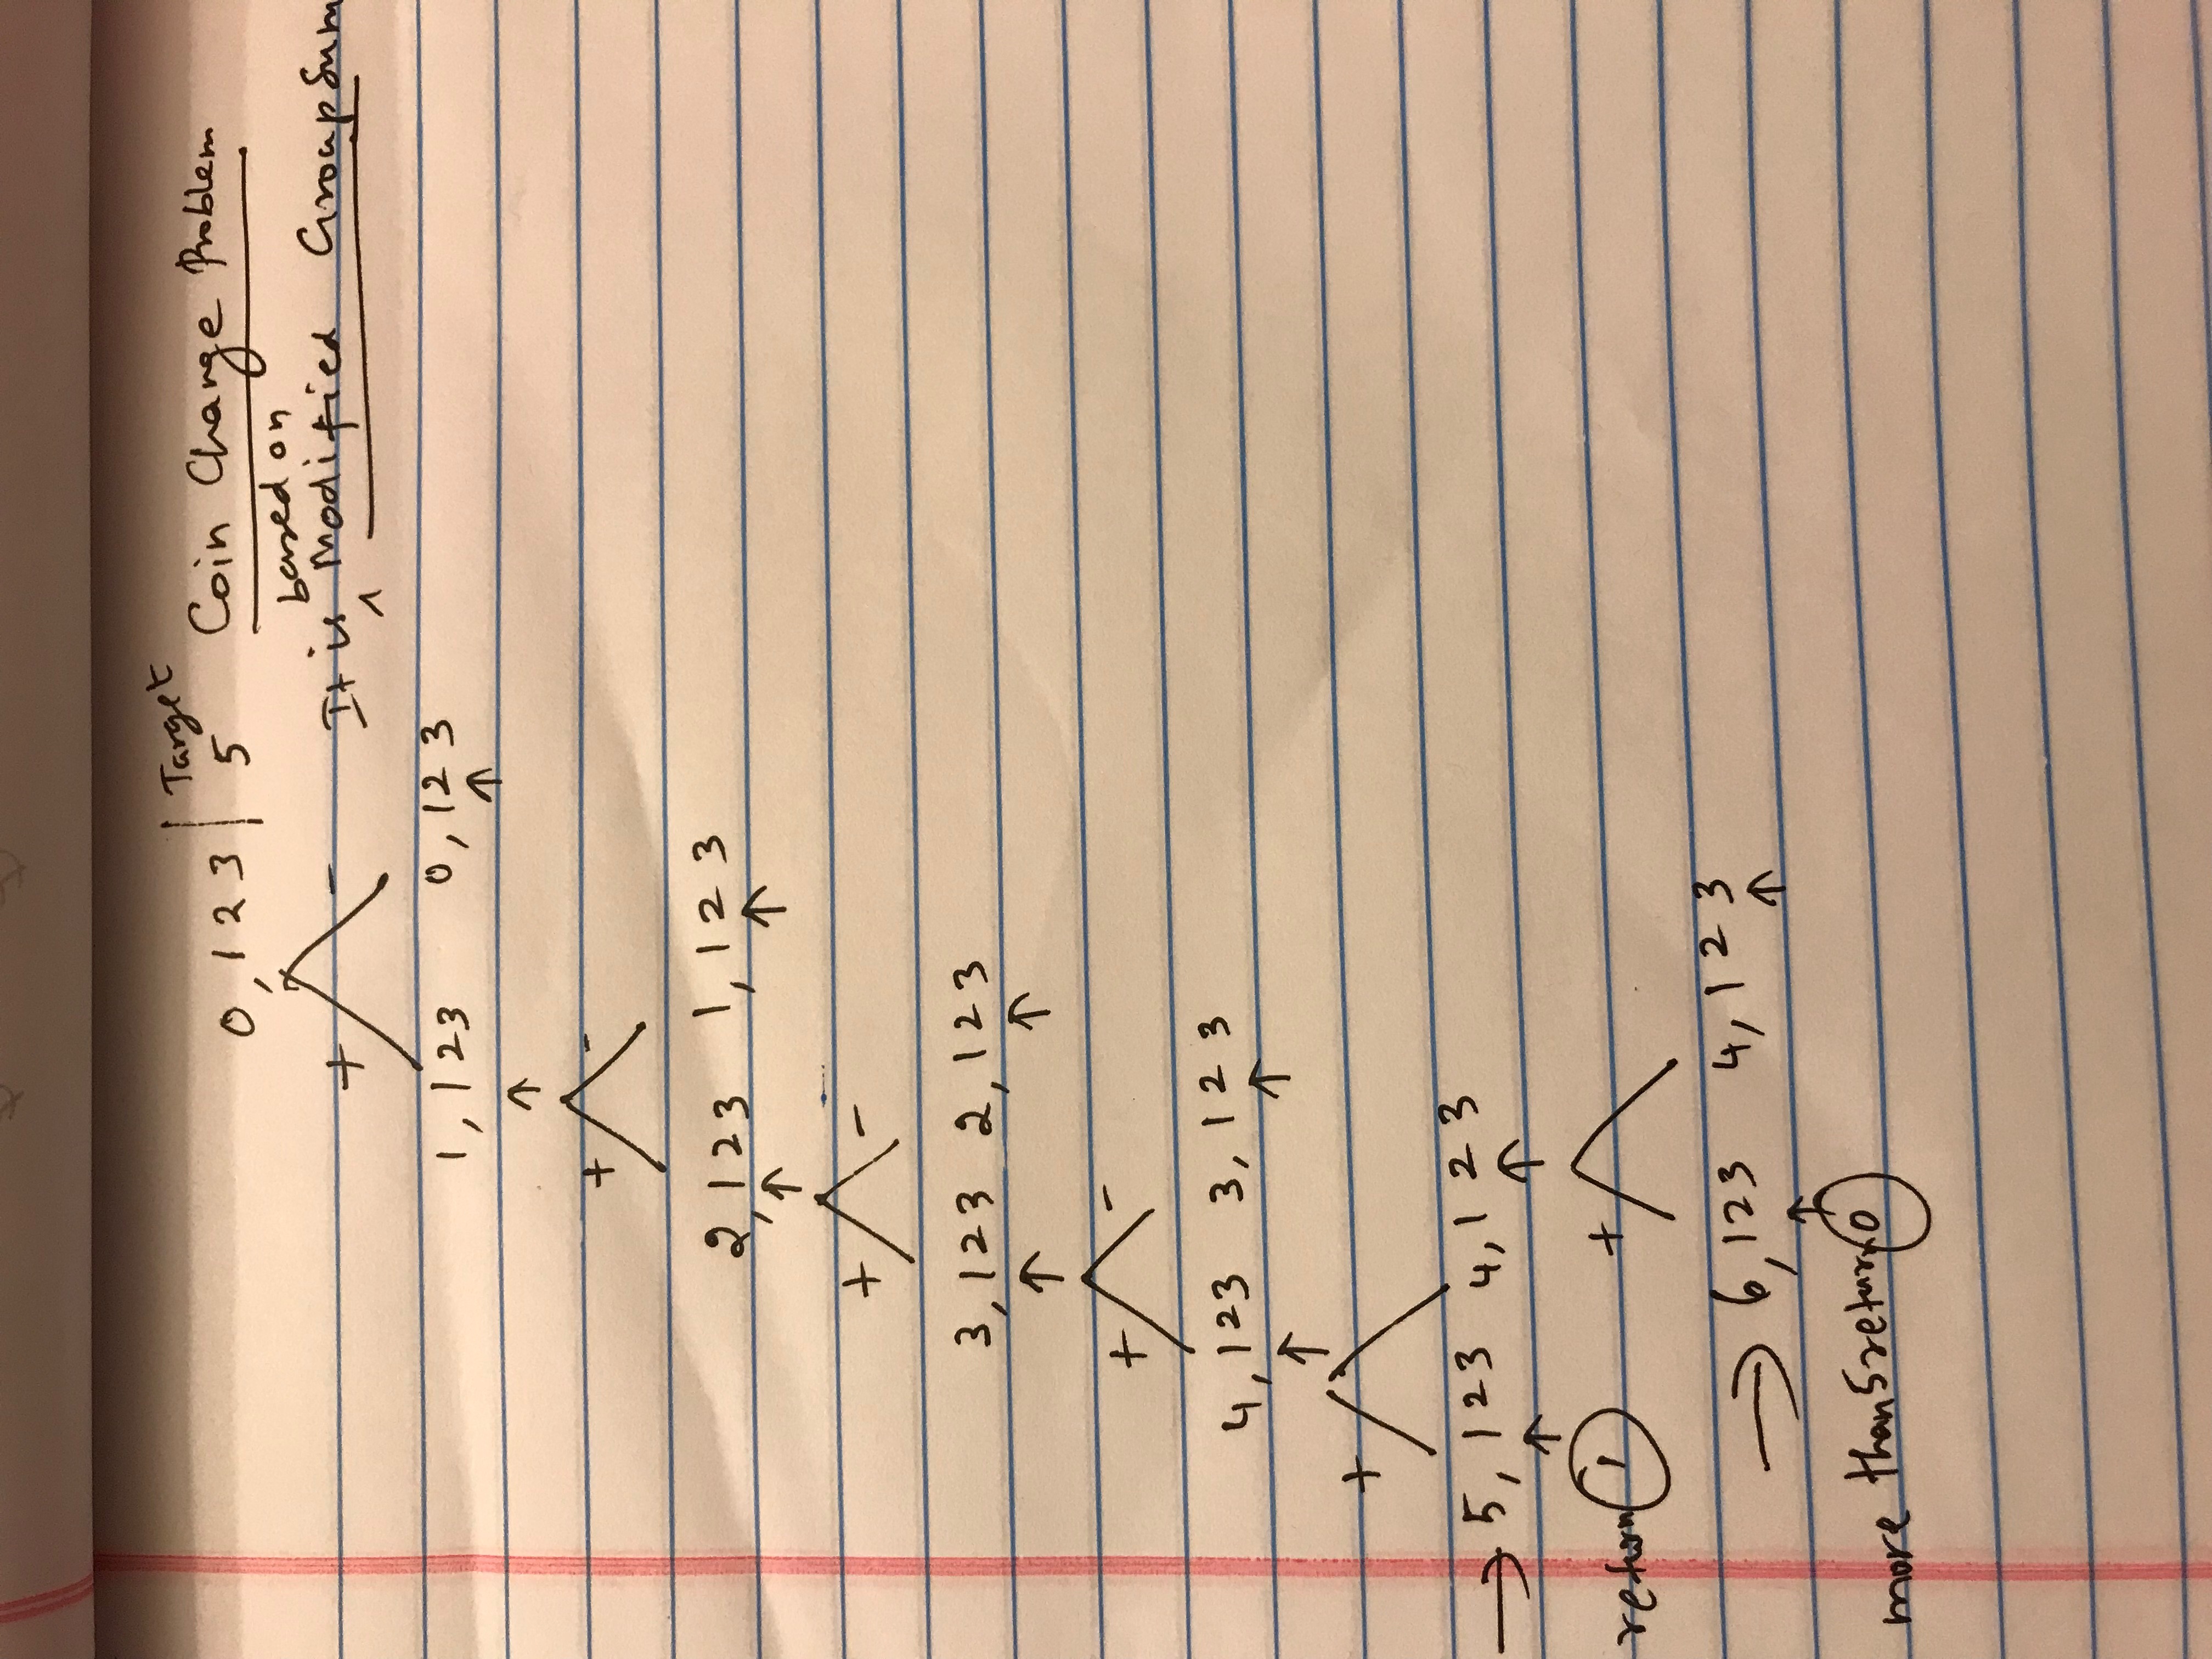 Target
0, 1 2 3 | 5 Coin Change Problem
based on
It is ^ Modified GroupSum
+ -
1, 1 2 3 0, 1 2 3
↑ ↑
+ -
2, 1 2 3 1, 1 2 3
↑ ↑
+ -
3, 1 2 3 2, 1 2 3
↑ ↑
+ -
4, 1 2 3 3, 1 2 3
↑ ↑
+
→ 5, 1 2 3 4, 1 2 3
↑ ↑
return 1 +
→ 6, 1 2 3 4, 1 2 3
↑ ↑
more than 5 return 0